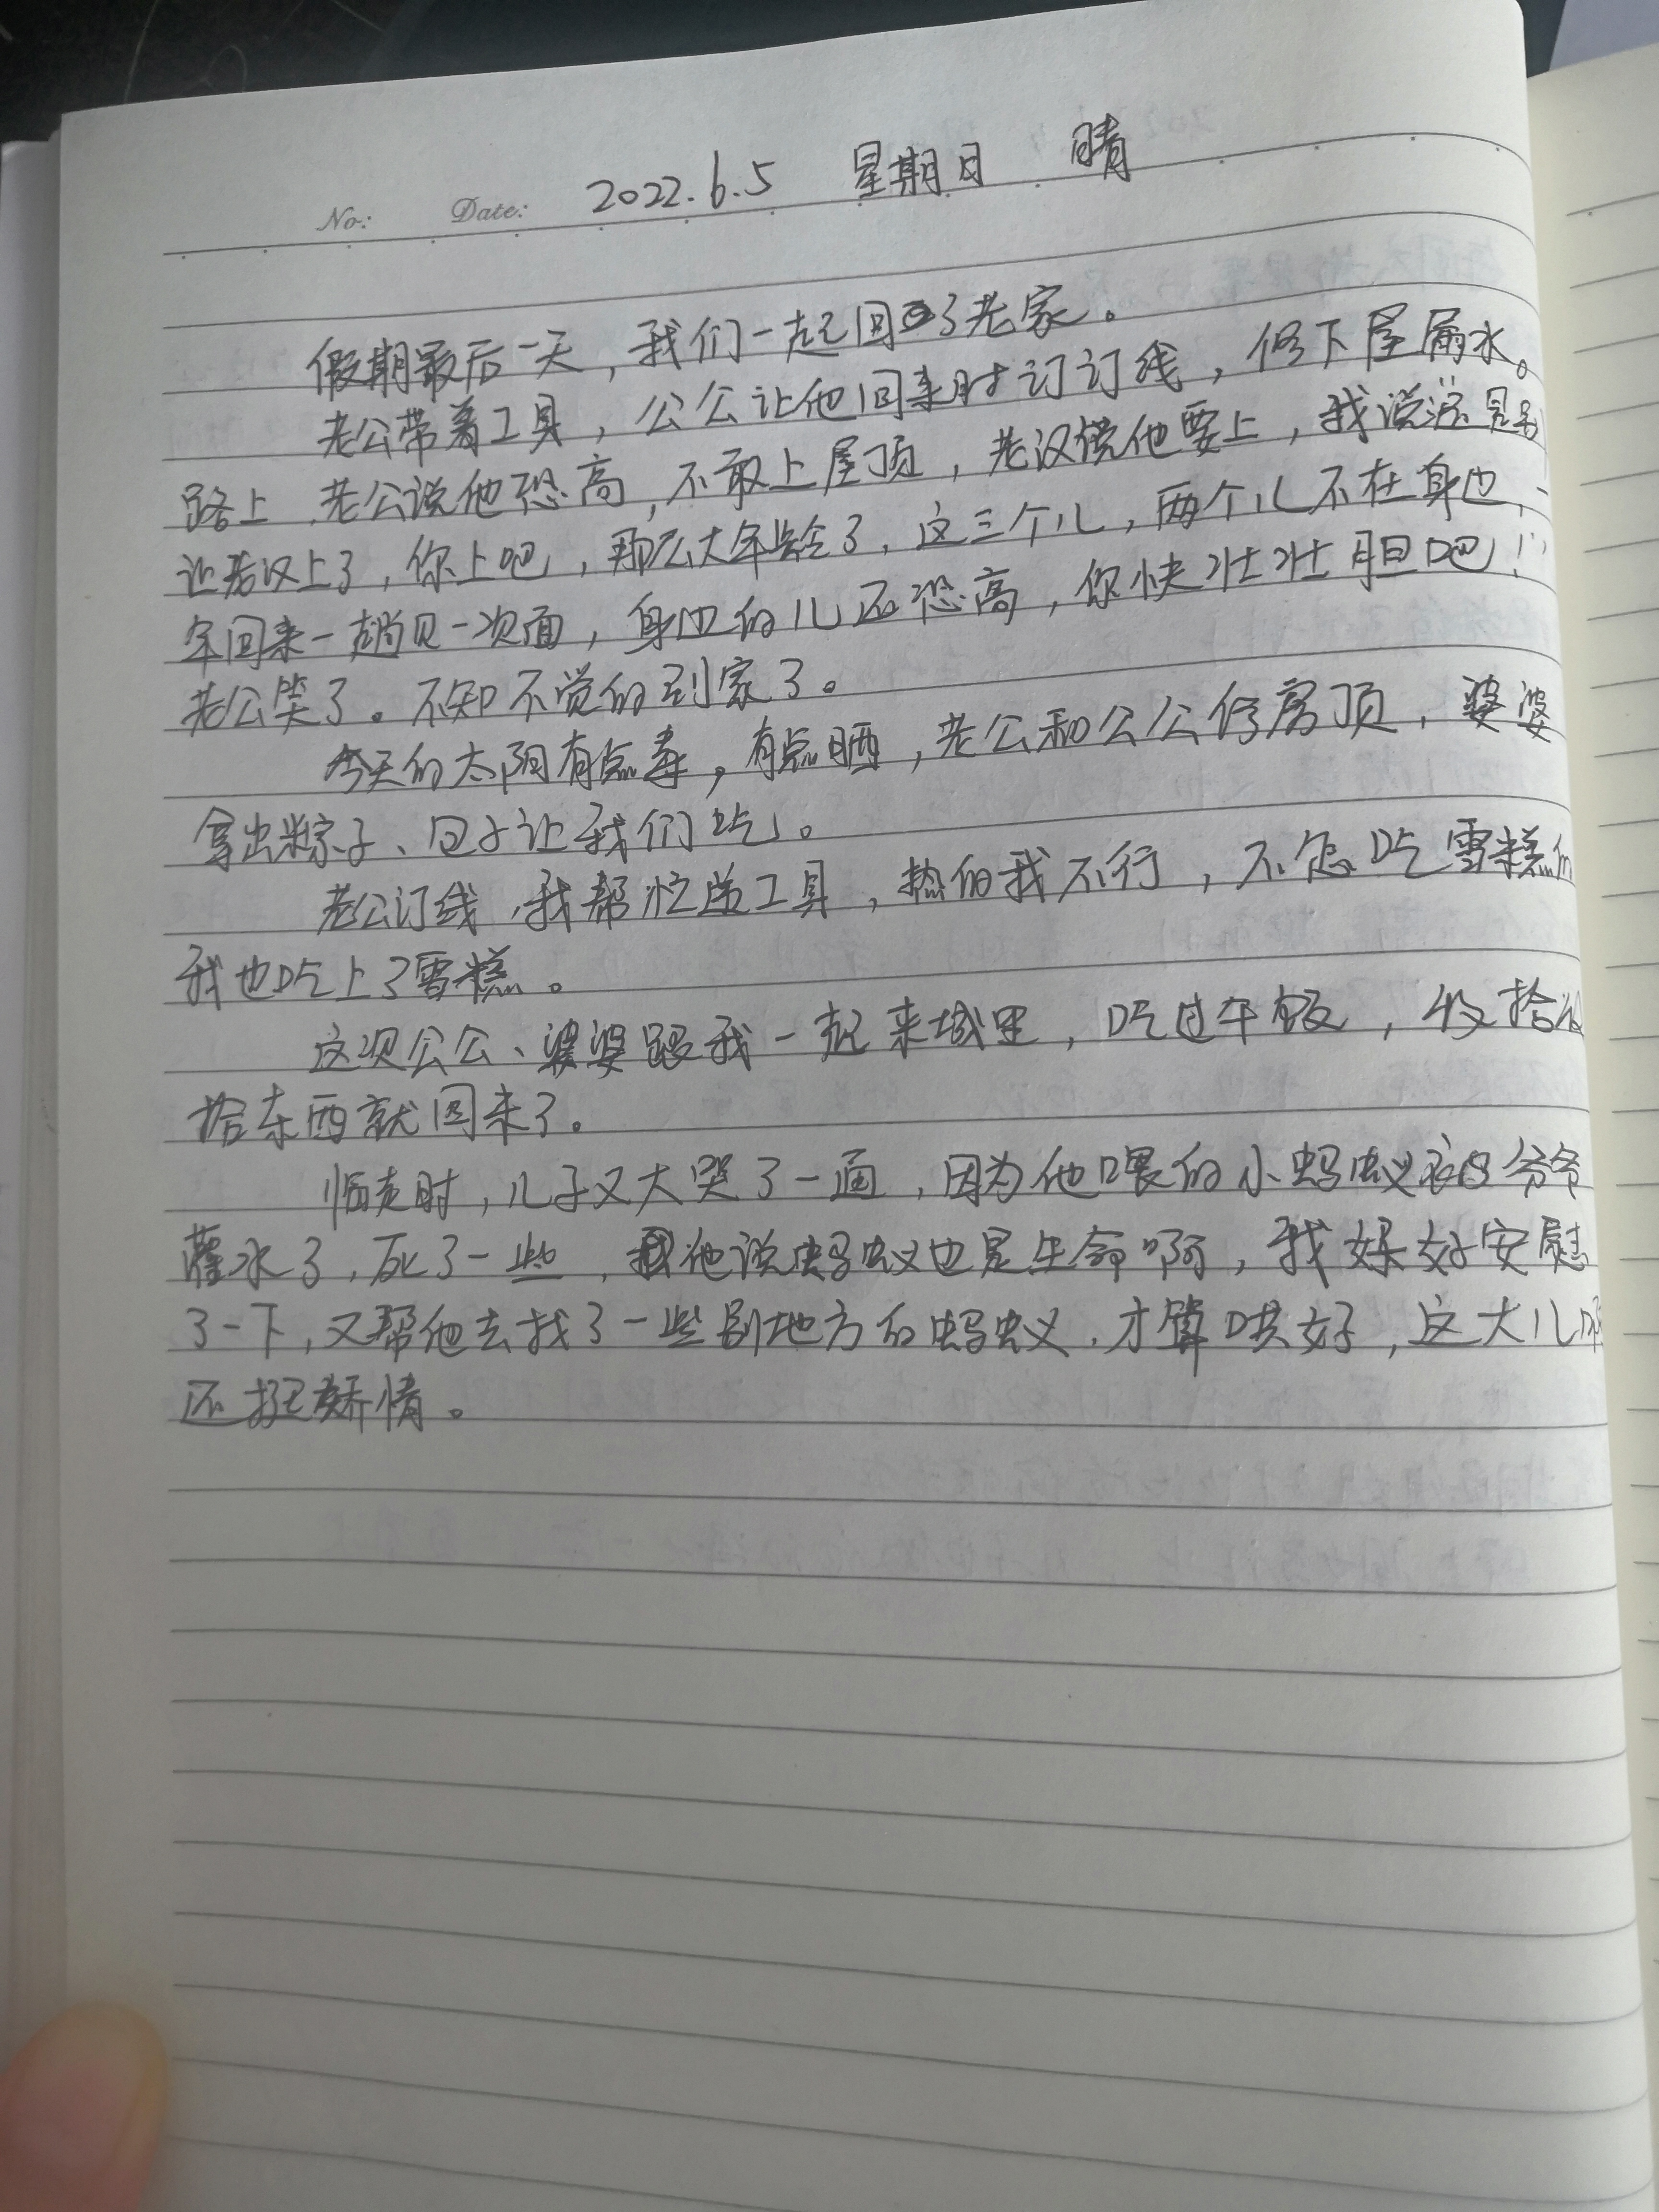 No: Date: 2022.6.5 星期日 晴
假期最后一天，我们一起回了老家。
老公带着工具，公公让他回来时订订线，修下屋漏水。
路上，老公说他恐高，不敢上屋顶，老汉说他要上，我说还是别
让老汉上了，你上吧，那么大年龄了，这三个儿，两个儿不在身边，一
年回来一趟见一次面，身边的儿还恐高，你快壮壮胆吧！
老公笑了。不知不觉的到家了。
今天的太阳有点毒，有点晒，老公和公公修房顶，婆婆
拿出粽子、包子让我们吃。
老公订线，我帮忙递工具，热的我不行，不怎吃雪糕的
我也吃上了雪糕。
这次公公、婆婆跟我一起来城里，吃过午饭，收拾收
拾东西就回来了。
临走时，儿子又大哭了一通，因为他喂的小蚂蚁被爷爷
灌水了，死了一些，他说蚂蚁也是生命啊，我好好安慰
了一下，又帮他去找了一些别地方的蚂蚁，才算哄好，这大儿
还挺矫情。